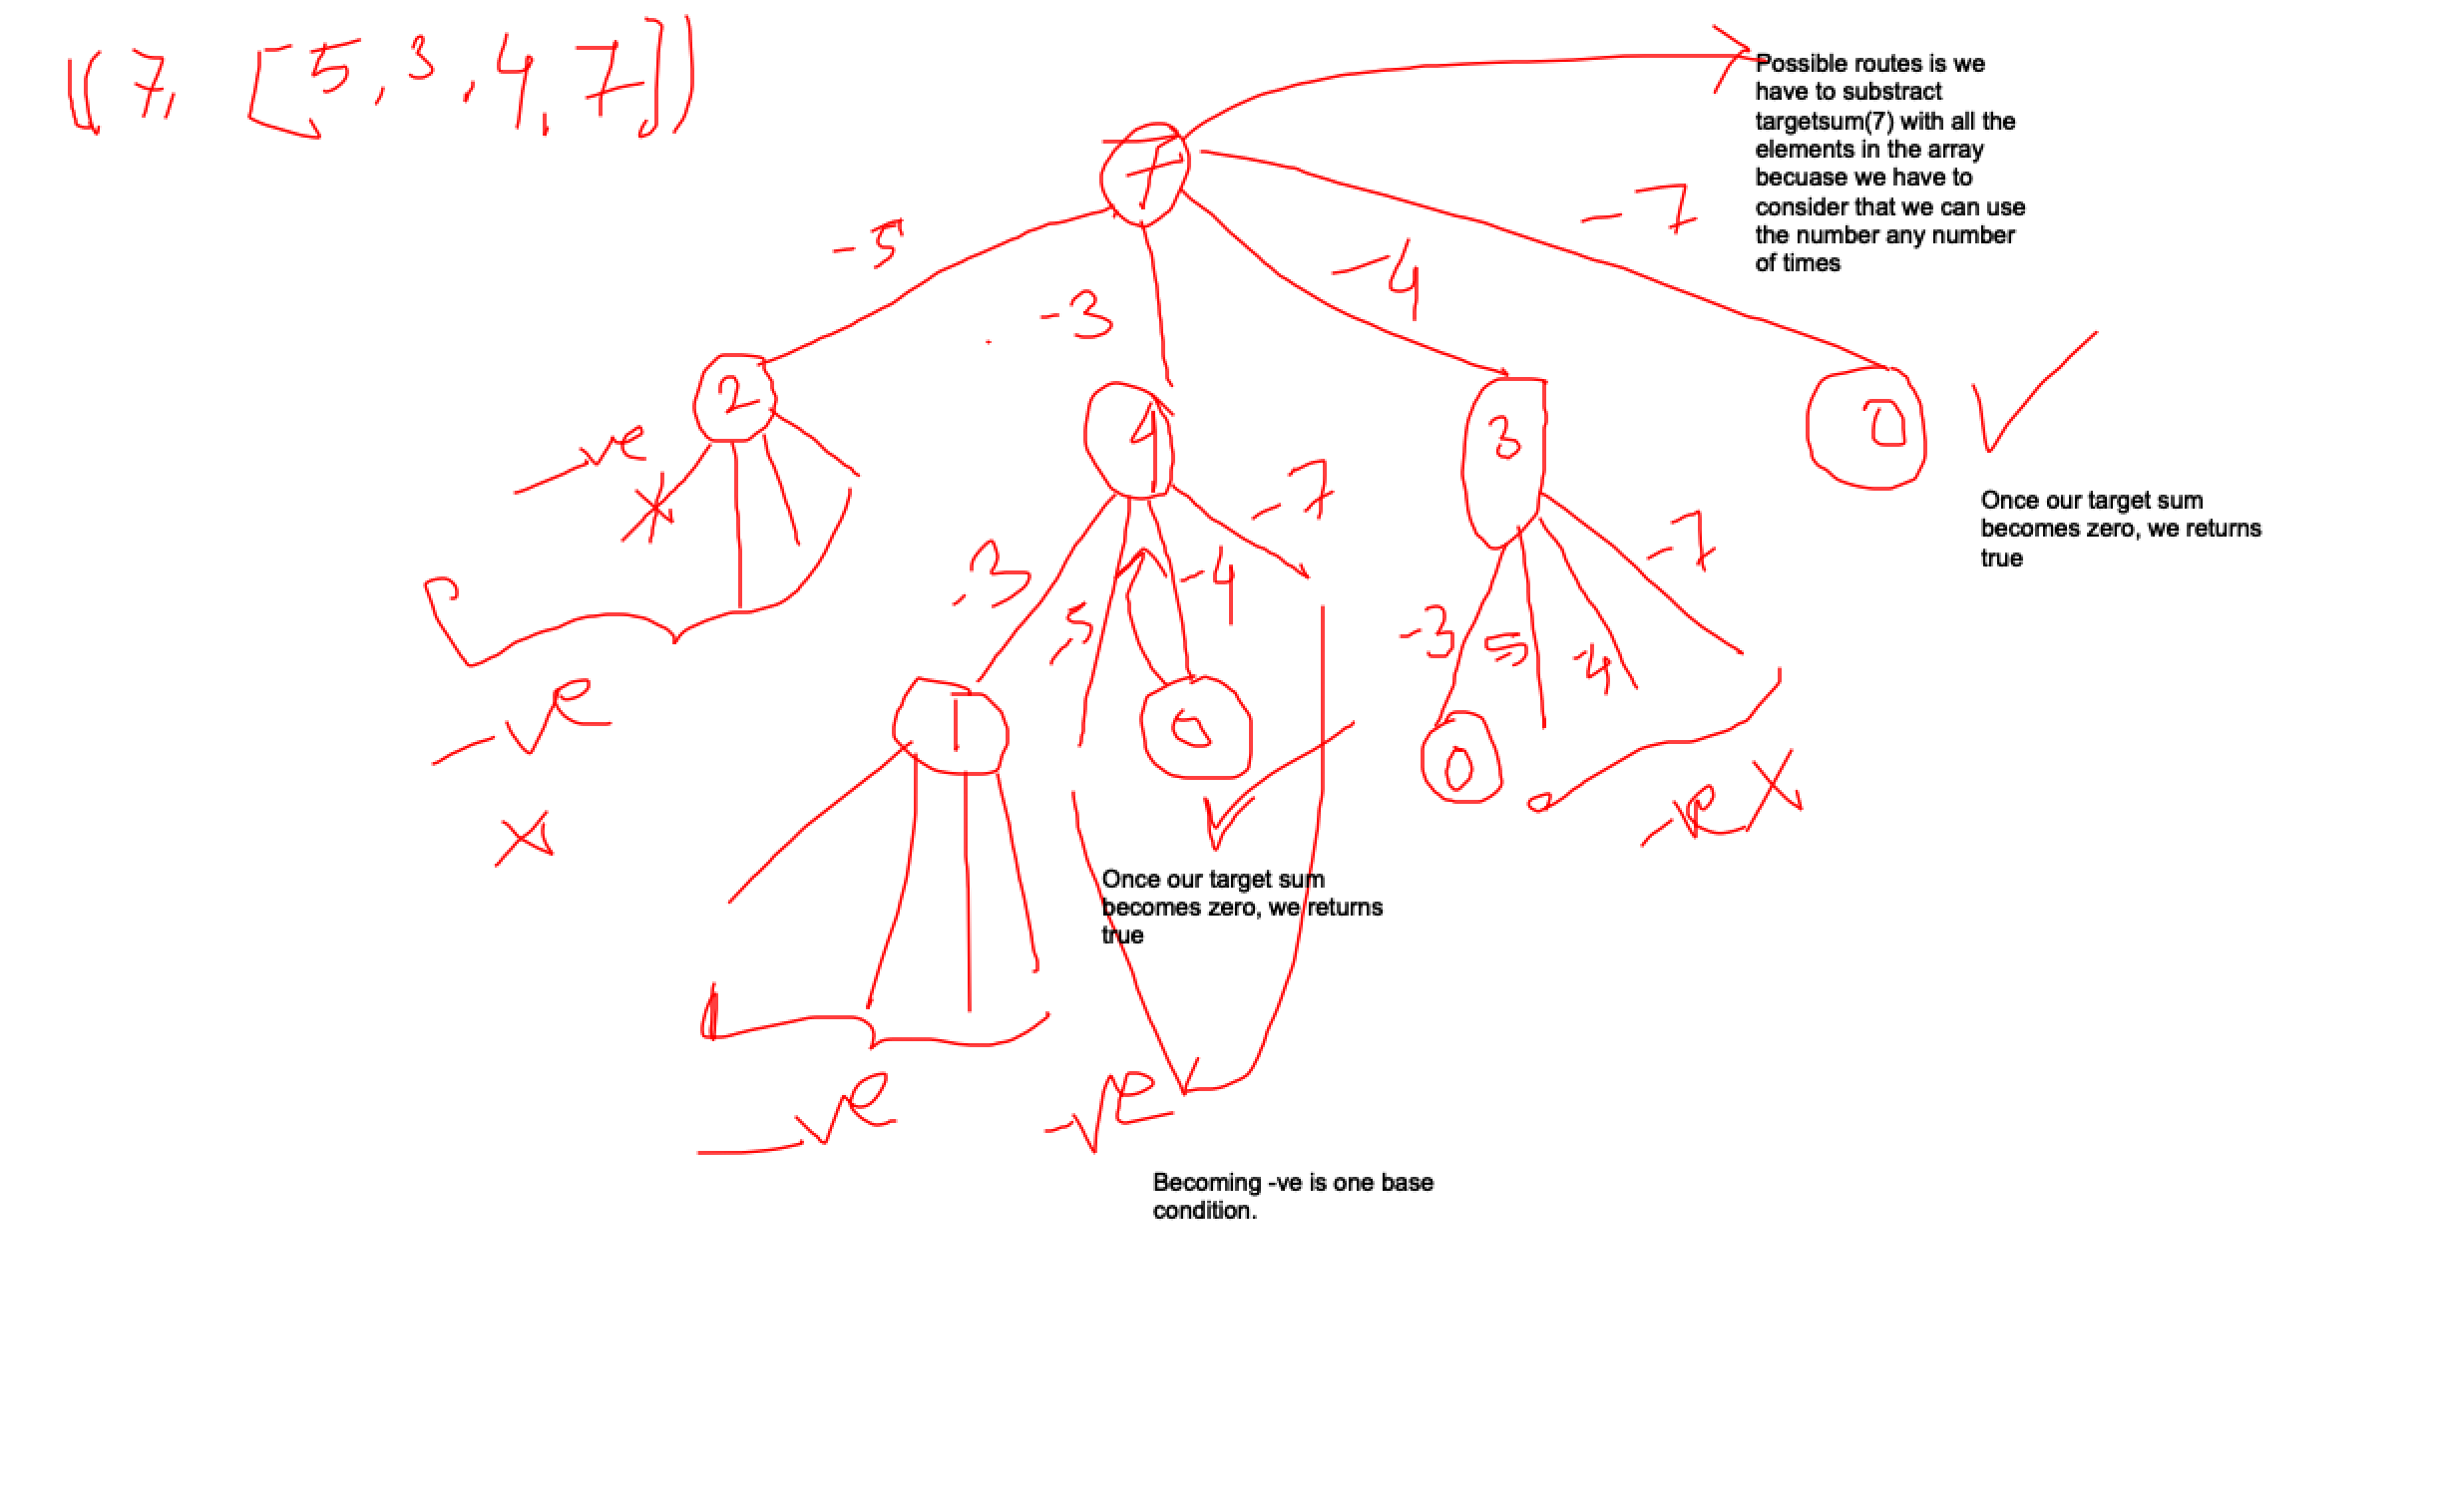 ((7, [5,3,4,7])
Possible routes is we
have to substract
targetsum(7) with all the
elements in the array
becuase we have to
consider that we can use
the number any number
of times
7
-5
-3
-4
-7
2
4
3
0
Once our target sum
becomes zero, we returns
true
-ve
-ve
-3
-5
-4
-7
-3
5
-4
-7
1
0
0
-ve
Once our target sum
becomes zero, we returns
true
-ve
-ve
Becoming -ve is one base
condition.